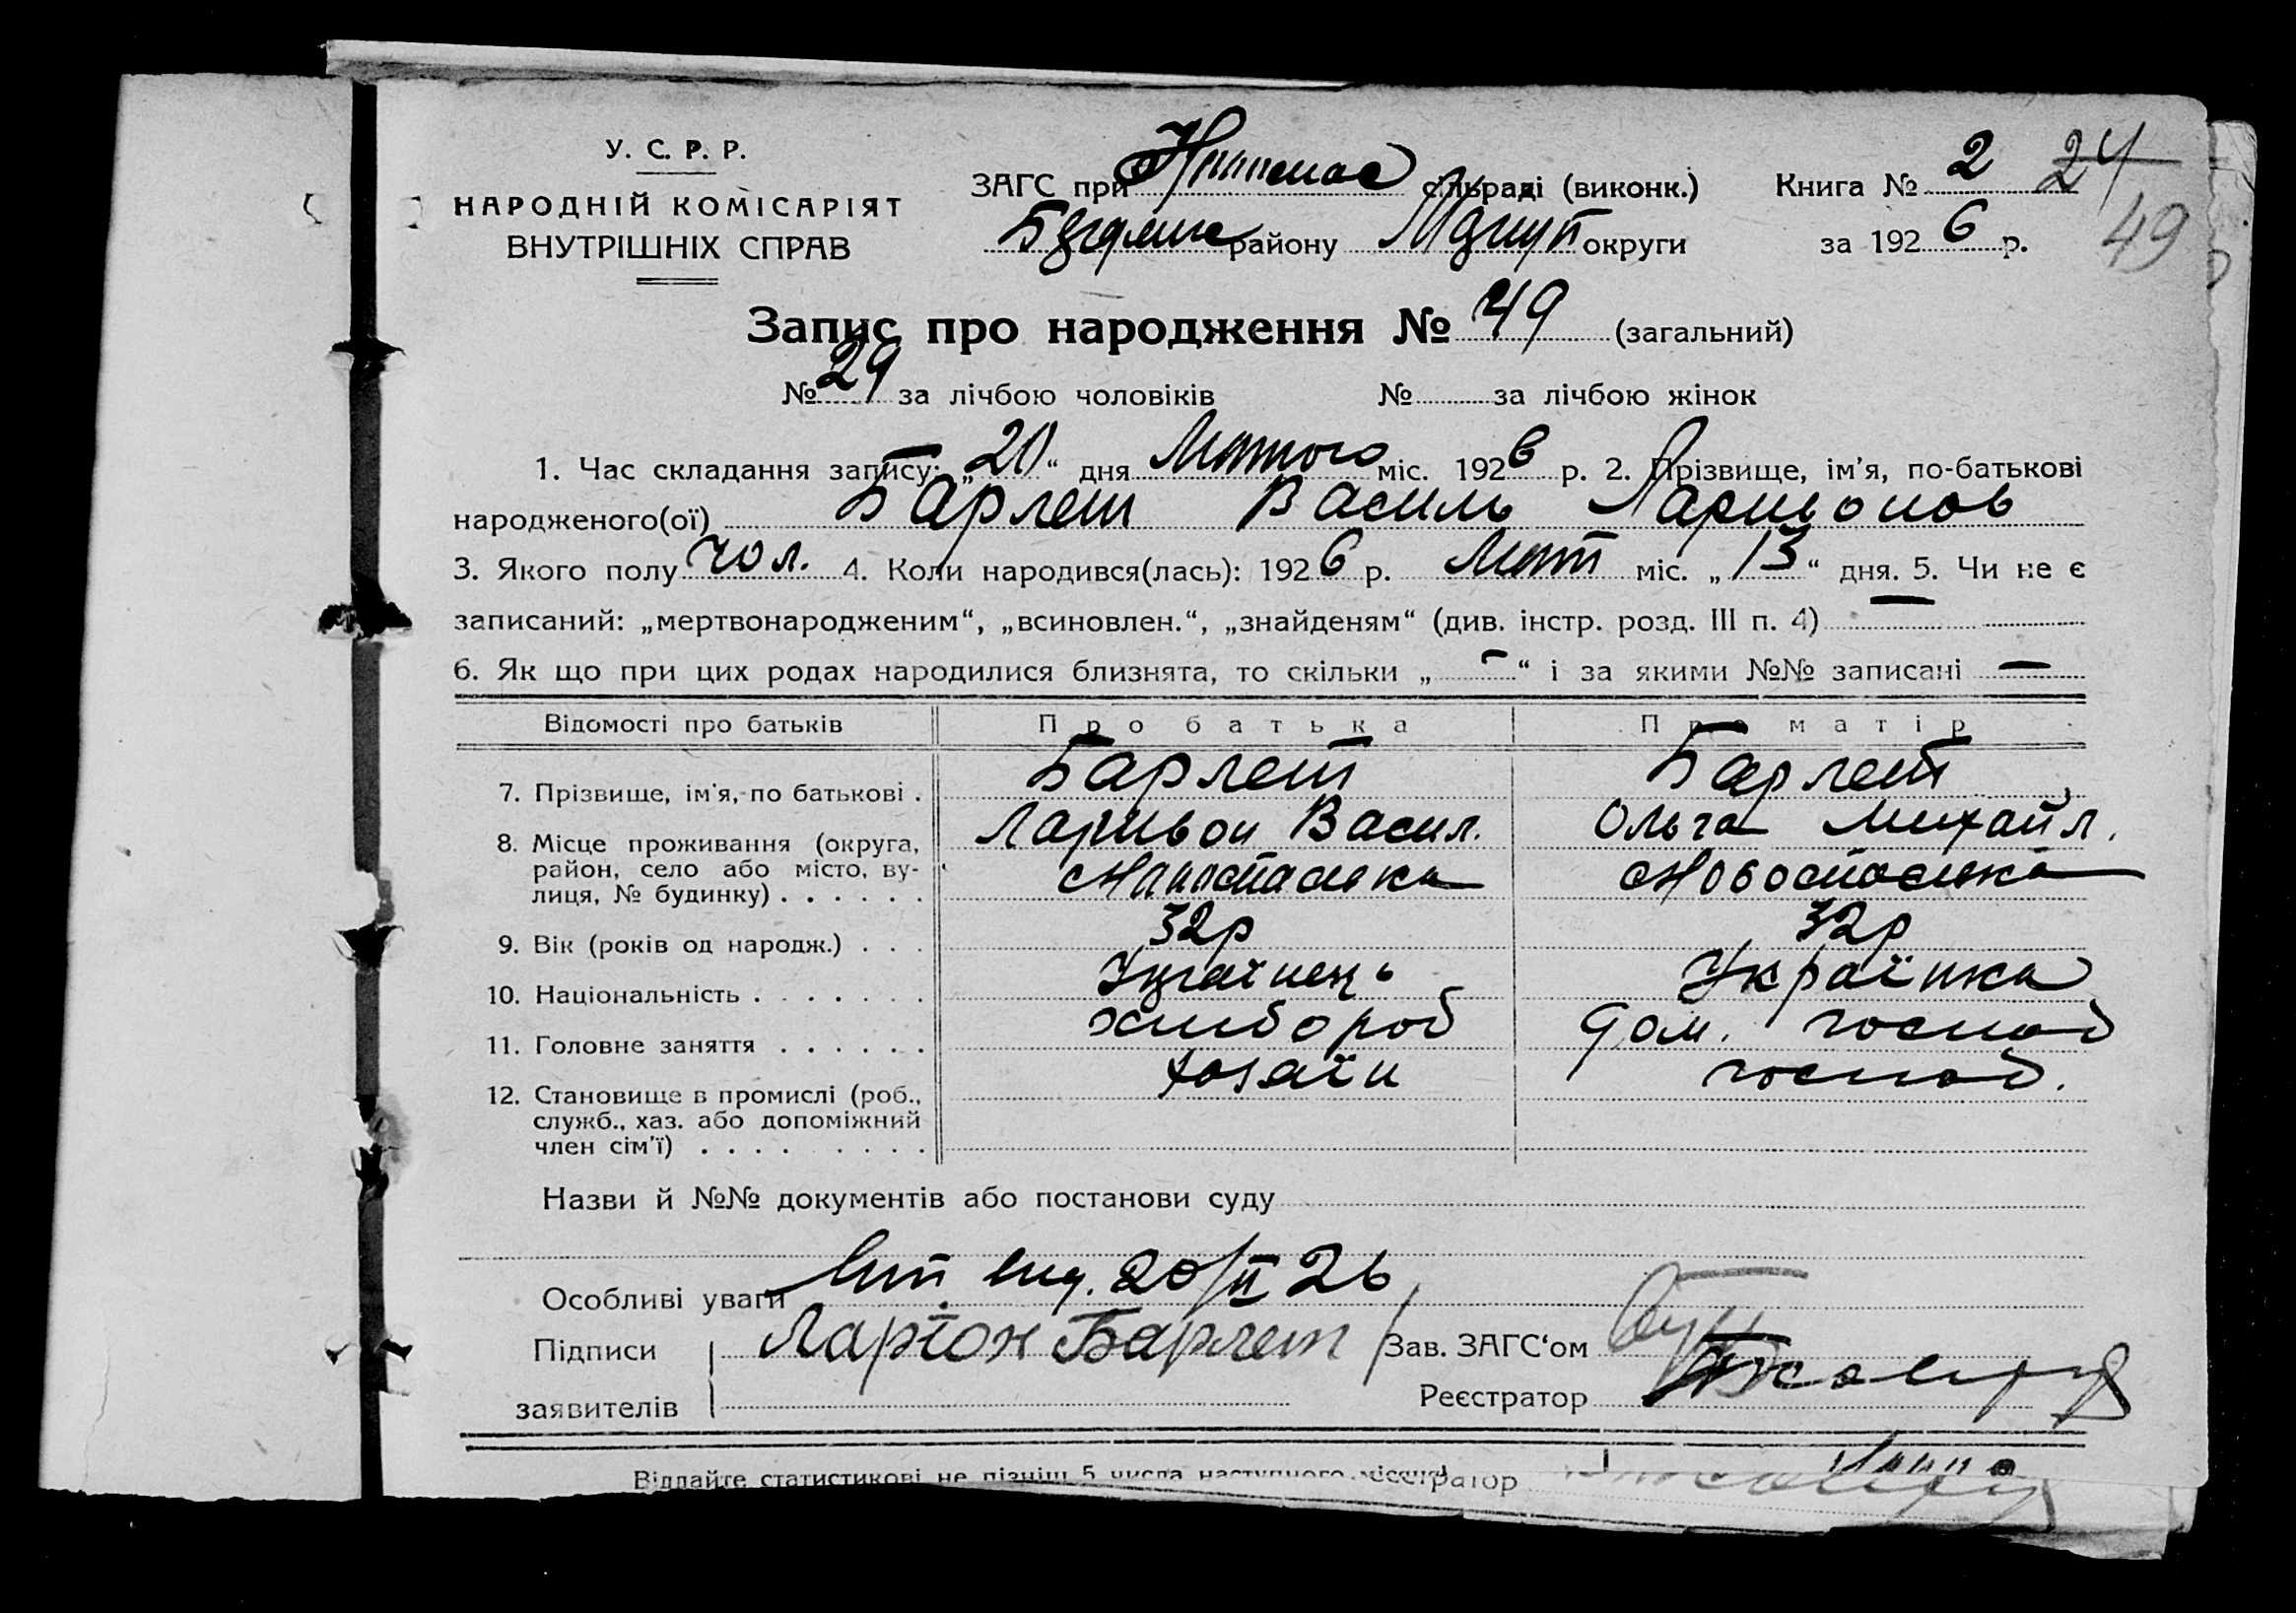 У. С. Р. Р.
НАРОДНІЙ КОМІСАРІЯТ
ВНУТРІШНІХ СПРАВ
ЗАГС при сільраді (виконк.)
району округи
Книга № 2 24
за 1926 р. 49
Запис про народження № 49 (загальний)
№ 29 за лічбою чоловіків № за лічбою жінок
1. Час складання запису: „20“ дня Лютого міс. 1926 р. 2. Прізвище, ім'я, по-батькові
народженого(ої) Барлет Василь Ларивонов
3. Якого полу чол. 4. Коли народився(лась): 1926 р. Лют міс. „13“ дня. 5. Чи не є
записаний: „мертвонародженим“, „всиновлен.“, „знайденям“ (див. інстр. розд. III п. 4) —
6. Як що при цих родах народилися близнята, то скільки „-“ і за якими №№ записані —
Відомості про батьків Про батька Про матір
7. Прізвище, ім'я, по батькові . Барлет Барлет
Ларивон Васил. Ольга Михайл.
8. Місце проживання (округа,
район, село або місто, ву-
лиця, № будинку) . . . . . .
9. Вік (років од народж.) . . . 32р 32р
10. Національність . . . . . . . Українець Українка
11. Головне заняття . . . . . . хлибороб дом. господ
12. Становище в промислі (роб., хозаїн господ.
служб., хаз. або допоміжний
член сім'ї) . . . . . . . .
Назви й №№ документів або постанови суду
Особливі уваги 20/II 26
Підписи Ларіон Барлет Зав. ЗАГС'ом
заявителів Реєстратор
Віддайте статистикові не пізніш 5 числа наступного місяця